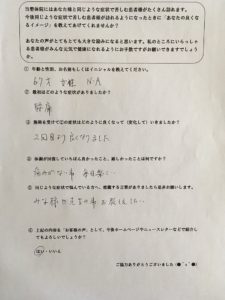 当整体院にはあなた様と同じような症状で苦しむ患者様がたくさん訪れます。
今後同じような症状で苦しむ患者様が訪れるようになったときに「あなたの良くなる
イメージ」を教えてあげてくれませんか？
あなたの声がとてもとても大きな励みになると思います。私のところにいらっしゃ
る患者様がみんな元気で健康になれるようにお手数ですがお願いできますでしょう
か。
① 年齢と性別、お名前もしくはイニシャルを教えてください。
67才 女性 N.A
② 最初はどのような症状がありましたか？
腰痛
③ 施術を受けて②の症状はどのように良くなって（変化して）いきましたか？
2回目より良くなりました
④ 体調が回復していちばん良かったこと、嬉しかったことは何ですか？
痛みがない事
⑤ 同じような症状で悩んでいる方へ、推薦する言葉がありましたら是非お願いします。
みな様
⑥ 上記の内容を「お客様の声」として、今後ホームページやニュースレターなどで紹介し
てもよろしいでしょうか？
はい・いいえ
ご協力ありがとうございました